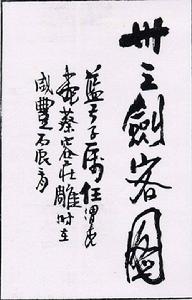 卅三劍客圖
藍子属任渭長
畫蔡容莊雕時在
咸豐